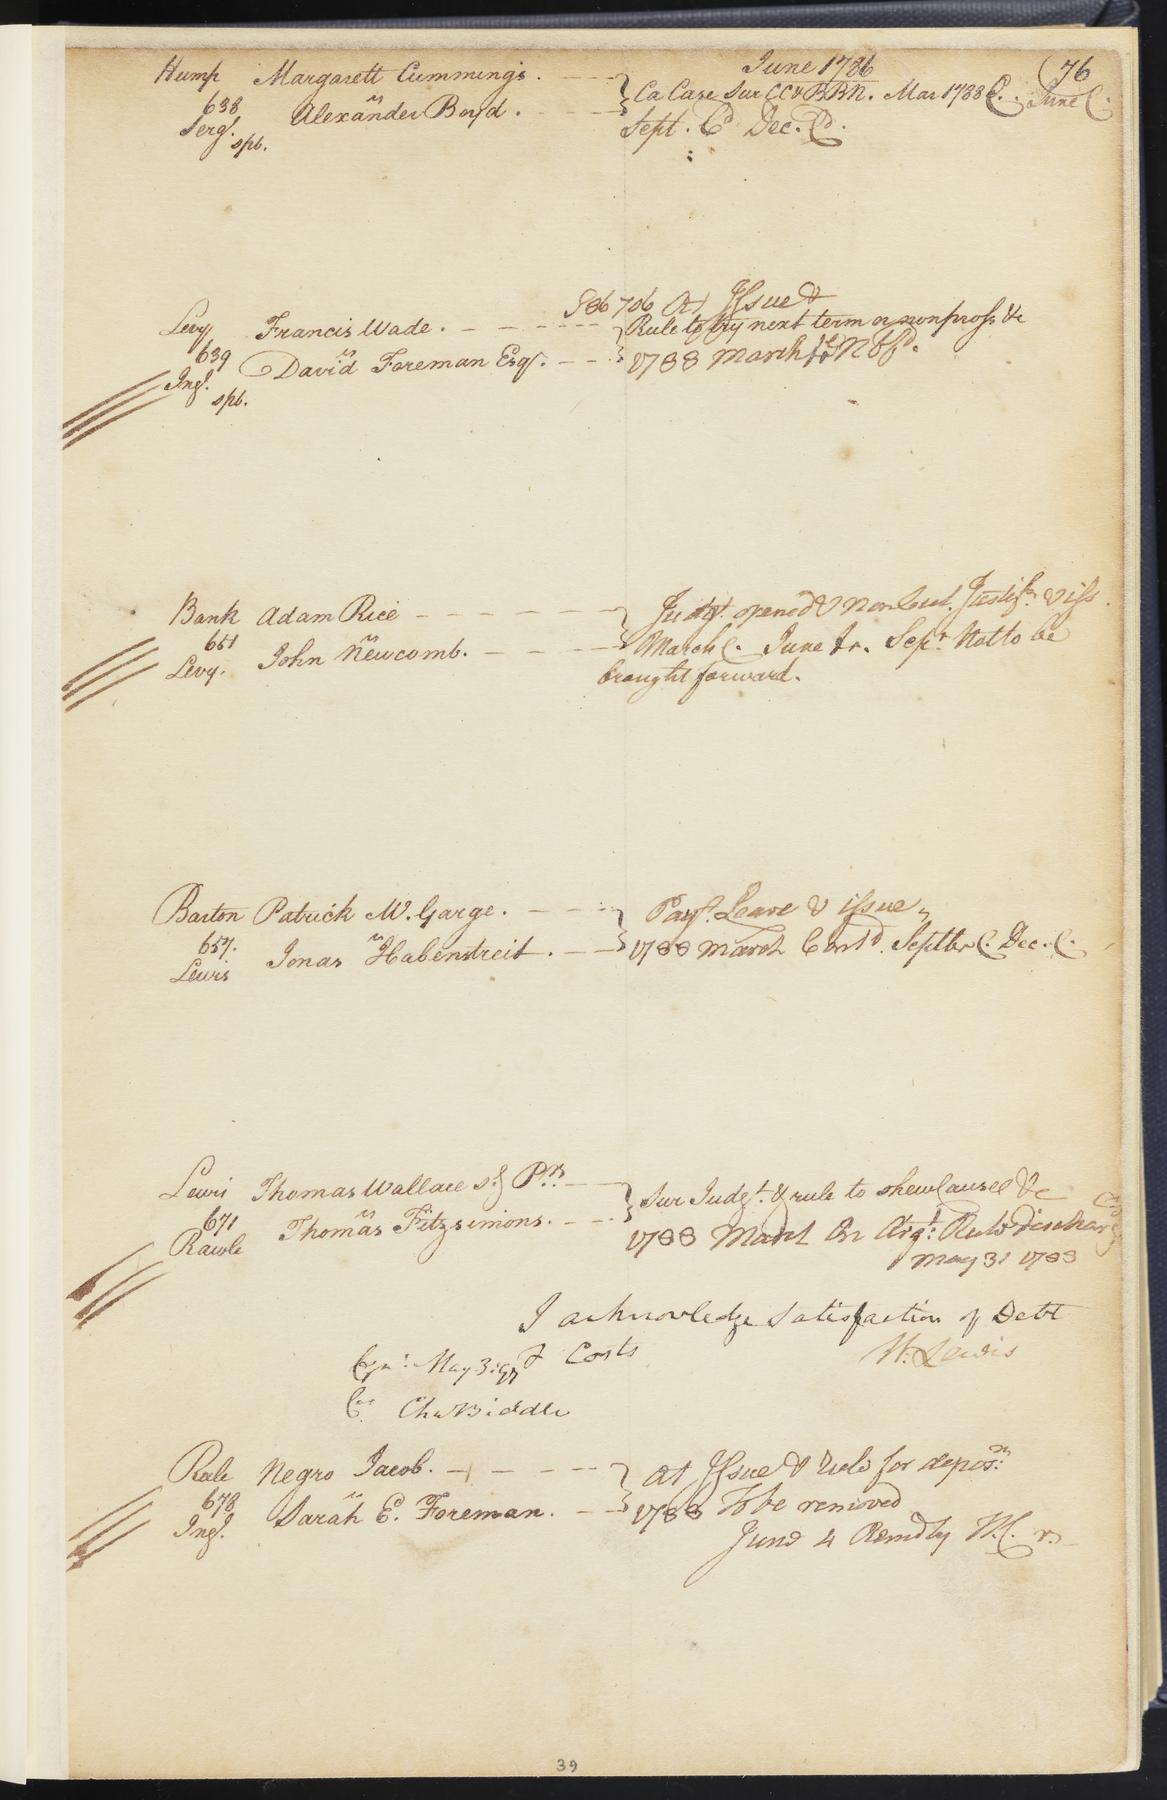 June 1786
(76
Hump Margarett Cummings.
Ca Case Sur CC & BBN. Mar 1788 C. June C.
638 vs Alexander Boyd.
Serg.t Sept. C.d Dec. C.
spb.
S86 706 At Issue &
Levy Francis Wade.
Rule to try next term or nonpross &c
639 vs David Foreman Esq.r
1788 March N P.
Ing.l
spb.
Bank Adam Rice
Judg.t opened & Non Cul. Justif.n & iss.
651 vs John Newcomb.
March C. June Tr. Sep.r Not to be
Levy. brought forward.
Barton Patrick M. Garge.
Pay.t Leave & issue
657. vs Jonas Habenstreit.
1788 March Cont.d Septbr C. Dec. C.
Lewis
Lewis Thomas Wallace P.rs
Sur Judg.t & rule to shew cause &c
671 vs Thomas Fitzsimons.
1788 March Arg.t Rule discharg
Rawle May 31 1788
I acknowledge satisfaction of Debt
& Costs W. Lewis
May 3: 97
Cha Biddle
Rale Negro Jacob.
At Issue & rule for depos.ns
678 vs Sarah E. Foreman.
1788 To be removed
Ing.l June 4 Rem.d by
39